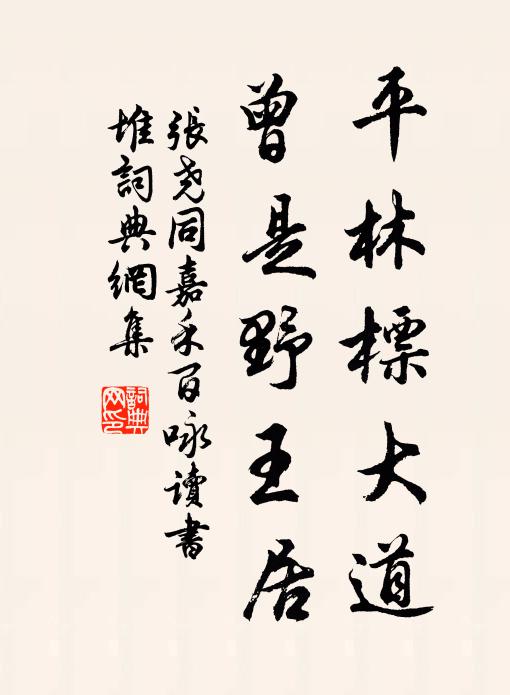 平林標大道
曾是野王居
張尧同嘉禾百咏讀書
堆詞典網集
詞典
网印